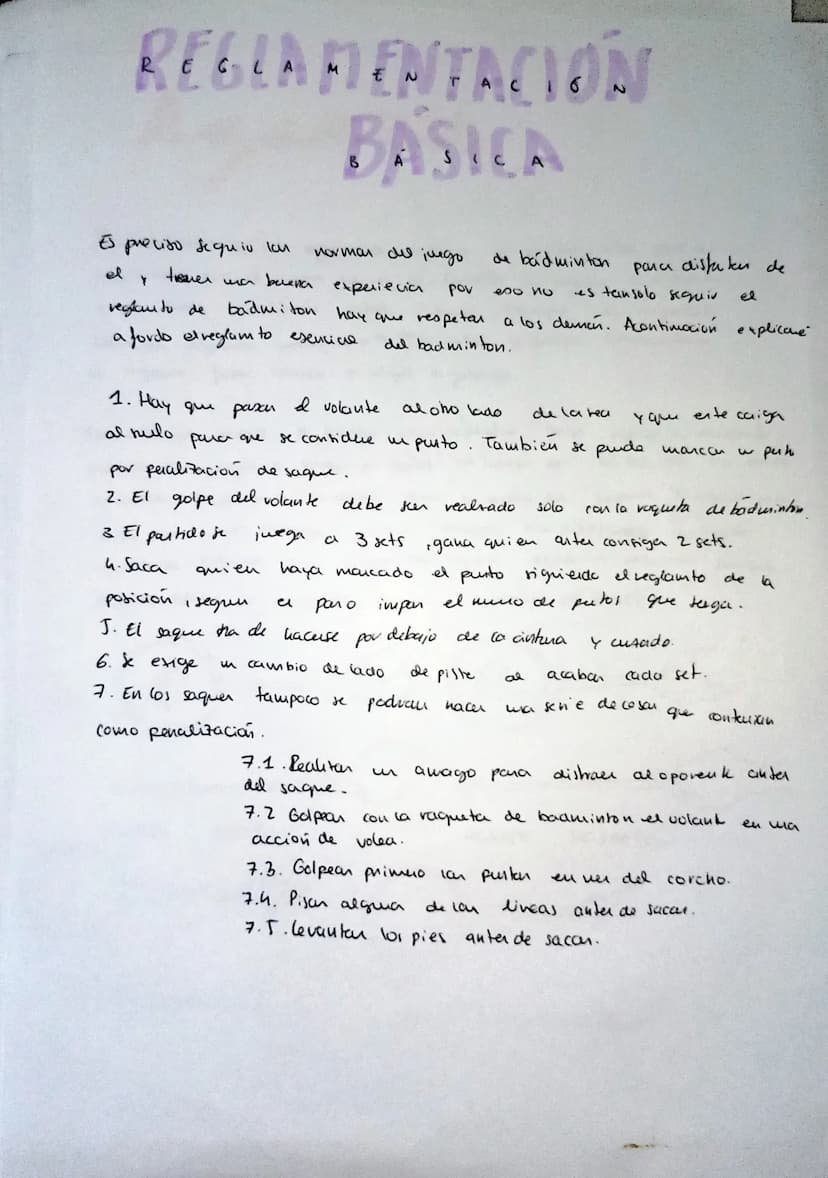 REGLAMENTACIÓN
REGLAMENTACIÓN
BÁSICA
BÁSICA
Es preciso seguir las normas del juego de bádminton para disfruter de
el y tener una buena experiecia por eso no es tansolo seguir el
reglamto de bádmiton hay que respetar a los demás. Acontinuación explicaré
a fondo el reglamto esencial del badminton.
1. Hay que pasar el volante al otro lado de la red y que este caiga
al suelo para que se considere un punto. También se puede marcar un punto
por penalización de saque.
2. El golpe del volante debe ser realizado solo con la raqueta de bádminton.
3 El partido se juega a 3 sets, gana quien antes consiga 2 sets.
4. Saca quien haya marcado el punto siguiendo el reglamto de la
posición, segun el paro impar el numo de putos que tenga.
5. El saque ha de hacerse por debajo de la cintura y cruzado.
6. Se exige un cambio de lado de piste al acabar cada set.
7. En los saques tampoco se podran hacer una serie de cosas que contarían
como penalización.
7.1. Realizar un amago para distraer al oponente antes
del saque.
7.2 Golpear con la raqueta de badminton el volante en una
acción de volea.
7.3. Golpear primero las plumas en vez del corcho.
7.4. Pisar alguna de las líneas antes de sacar.
7.5. Levantar los pies antes de sacar.